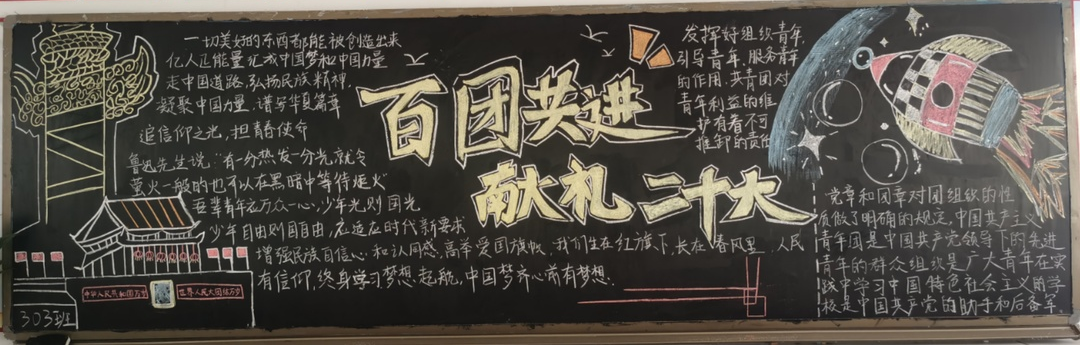 一切美好的东西都能被创造出来
亿人正能量汇成中国梦和中国力量
走中国道路,弘扬民族精神,
凝聚中国力量,谱写华夏篇章
追信仰之光,担青春使命
鲁迅先生说:"有一分热发一分光就令
萤火一般的也可以在黑暗中等待炬火"
吾辈青年应万众一心,少年光则国光
少年自由则国自由,应适应时代新要求
增强民族自信心和认同感,高举爱国旗帜,我们生在红旗下,长在春风里,人民
有信仰,终身学习梦想起航,中国梦齐心前有梦想.
中华人民共和国万岁
世界人民大团结万岁
303班
百团共进
献礼二十大
发挥好组织青年,
引导青年,服务青年
的作用,共青团对
青年利益的维
护有着不可
推卸的责任
党章和团章对团组织的性
质做了明确的规定,中国共产主义
青年团是中国共产党领导下的先进
青年的群众组织是广大青年在实
践中学习中国特色社会主义的学
校是中国共产党的助手和后备军.